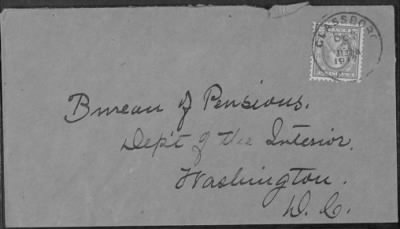 GLASSBORO
DEC
Bureau of Pensions.
Dep't of the Interior.
Washington.
D. C.